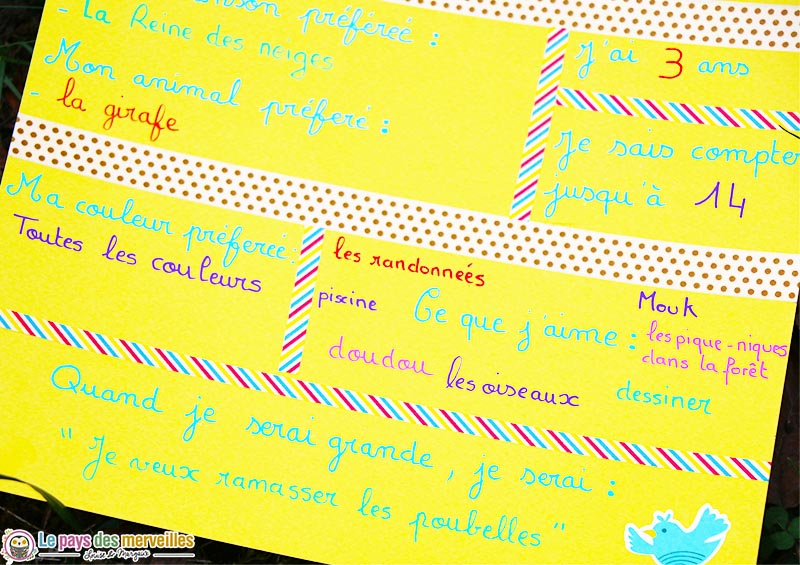 préféreé :
- La Reine des neiges
Mon animal préferé :
- la girafe
J'ai 3 ans
Je sais compter
jusqu'à 14
Ma couleur préfereé :
Toutes les couleurs
les randonneés
piscine
Ce que j'aime :
Mouk
les pique-niques
dans la forêt
doudou
les oiseaux
dessiner
Quand je serai grande, je serai :
"Je veux ramasser les poubelles"
Le pays des merveilles